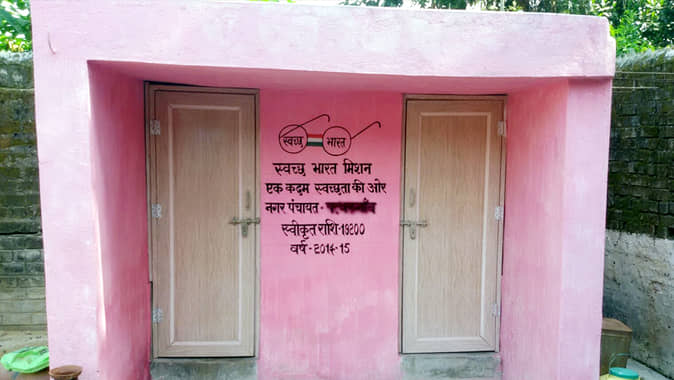 स्वच्छ भारत
स्वच्छ भारत मिशन
एक कदम स्वच्छता की ओर
नगर पंचायत -
स्वीकृत राशि-19200
वर्ष - 2014-15